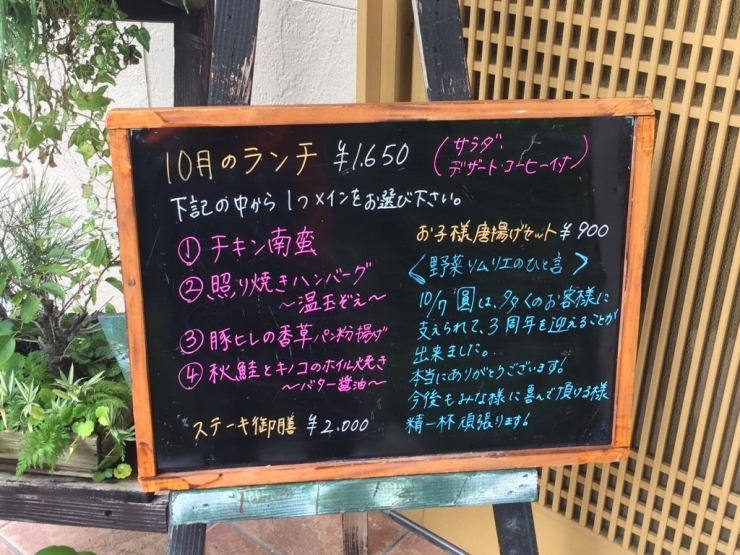 10月のランチ ¥1.650 (サラダ・デザート・コーヒー付)
下記の中から1つメインをお選び下さい。
① チキン南蛮
② 照り焼きハンバーグ
〜温玉ぞえ〜
③ 豚ヒレの香草パン粉揚げ
④ 秋鮭とキノコのホイル焼き
〜バター醤油〜
ステーキ御膳 ¥2.000
お子様唐揚げセット ¥900
<野菜ソムリエのひと言>
10/7 圓は、多くのお客様に
支えられて、3周年を迎えることが
出来ました。
本当にありがとうございます!
今後もみな様に喜んで頂ける様
精一杯頑張ります!